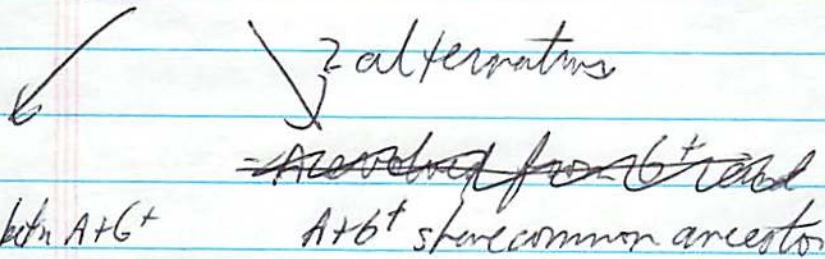 2 alternatives
A evolved from G+
A+G+ A+G+ share common ancestor